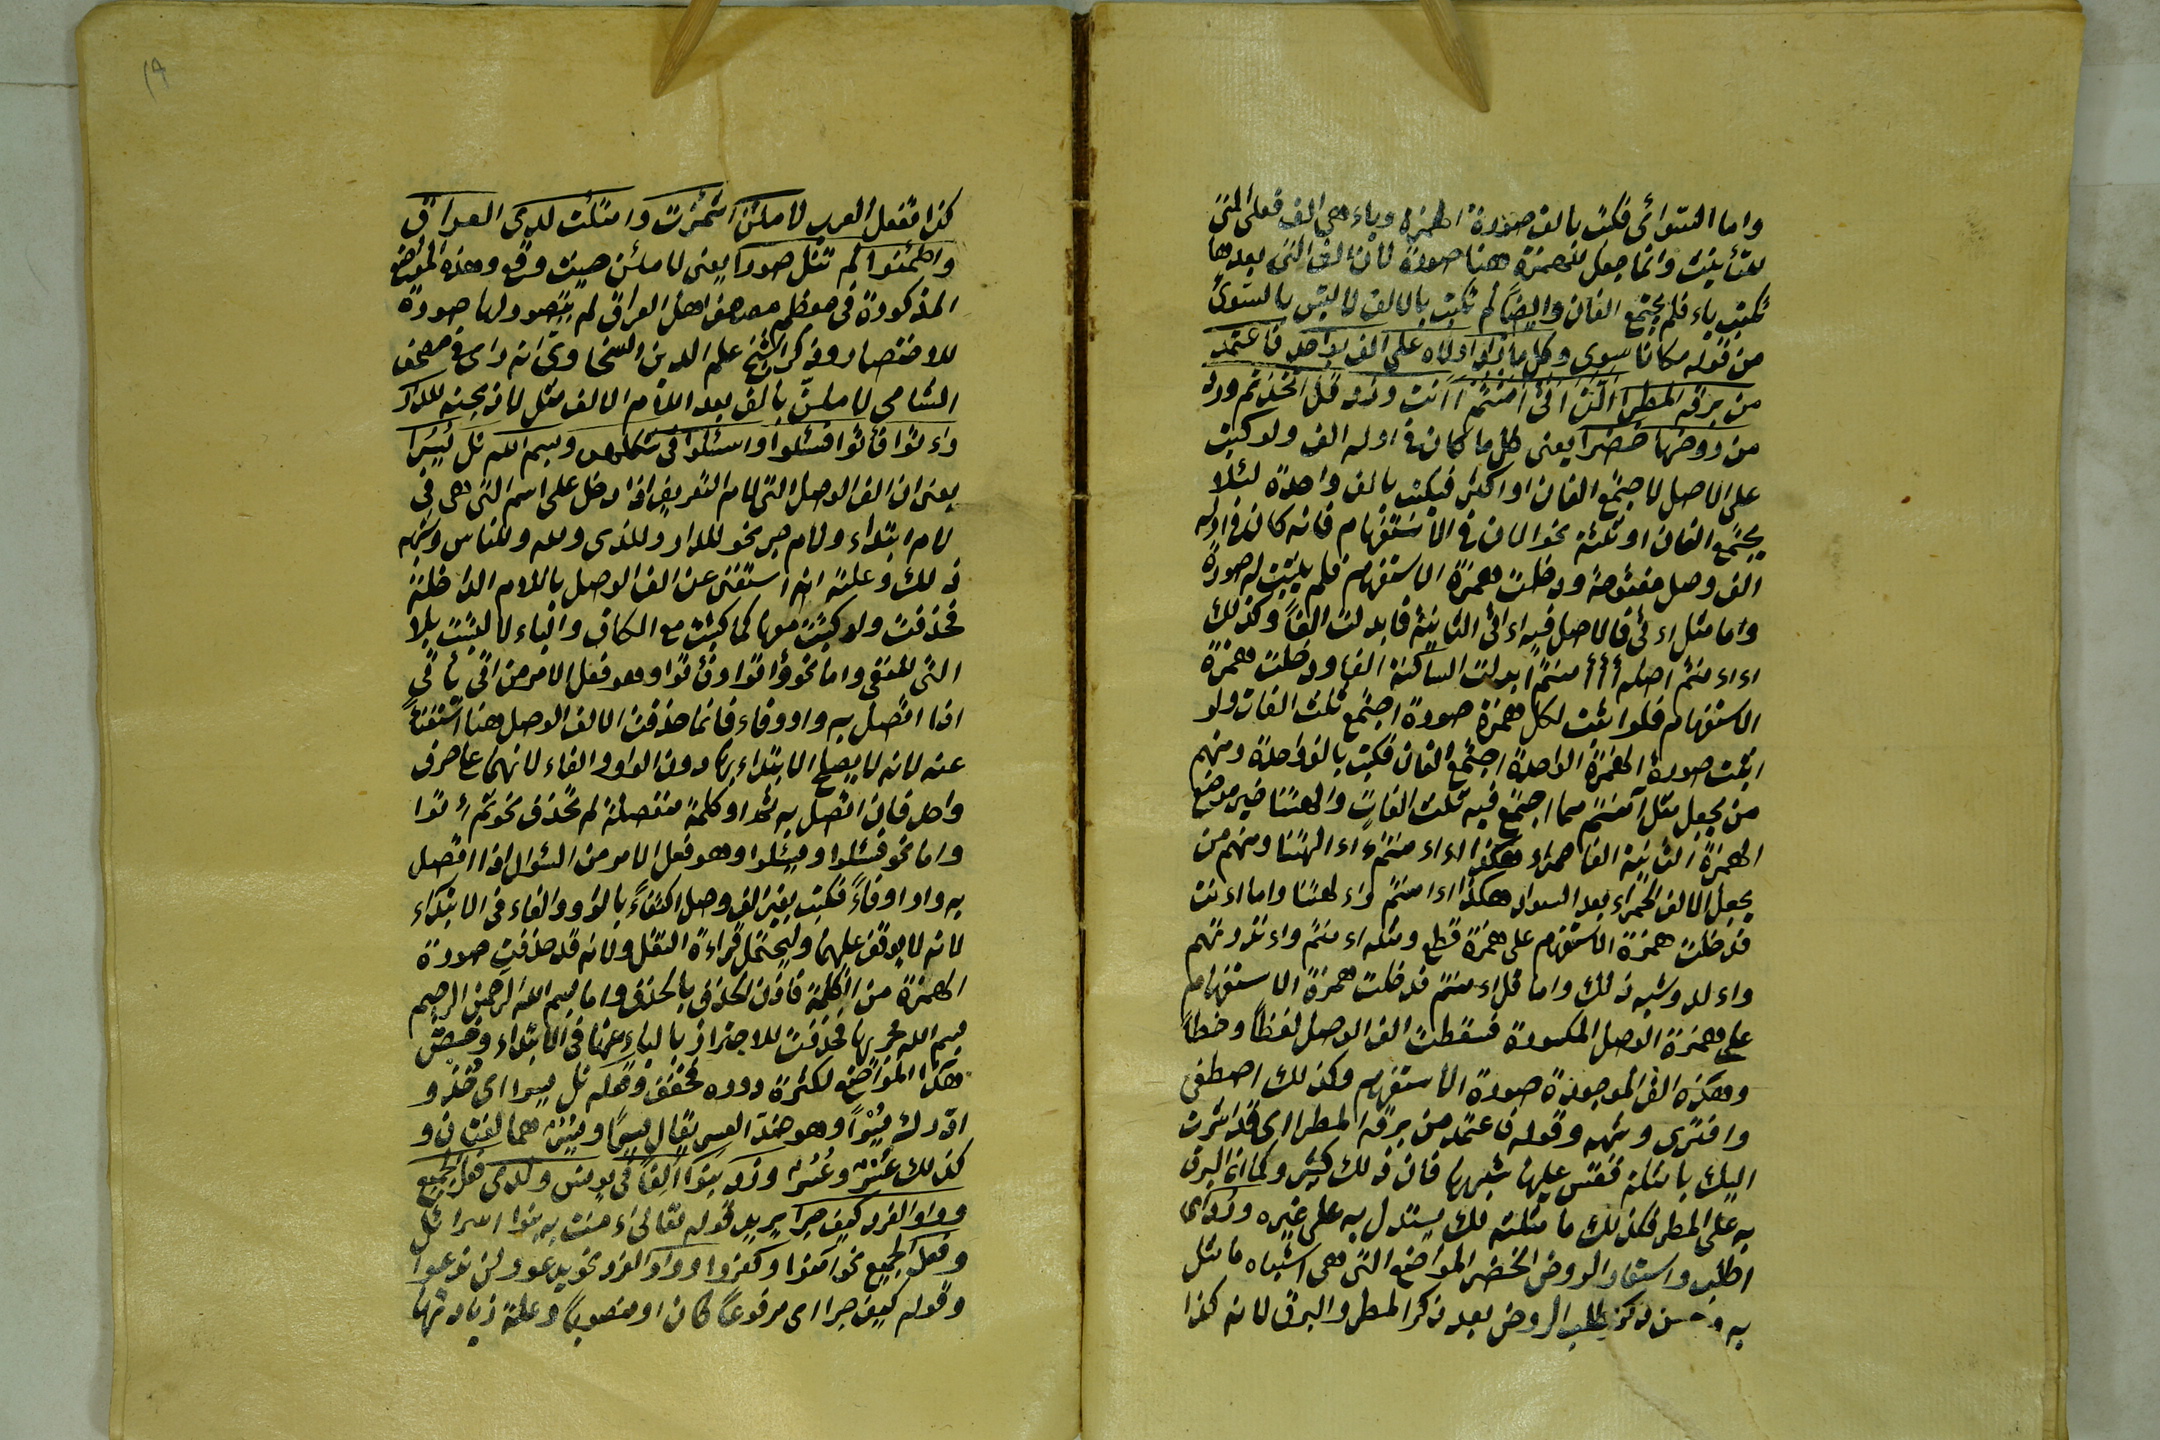 واما السوائى فكتب بالف صورة الهمزة وياء هى الف فعلى المبنى
للتأنيث وانما جعل للهمزة هنا صورة لأن الف التى بعدها
تكتب ياء فلم يجتمع الفان وايضا لم تكتب بالالف لالتبس بالسوئ
من قوله مكانا سوى وكل ما زاد اولاه على الف بواحد فاعتمد
من برقه المطرا الئن اتى امنتم اانت وزد قل اتخذتم ورد
من روضها خضرا يعنى كل ما كان فى اوله الف ولو كتبت
على الاصل لاجتمع الفان او اكثر فيكتب بالف واحدة لئلا
يجتمع الفان او ثلثة نحو الان فى الاستفهام فانه كان فى اوله
الف وصل مفتوحة ودخلت همزة الاستفهام فلم يثبت له صورة
واما مثل اءتى فالاصل فيه اءاتى الثانية فابدلت الفا وكذلك
اءاءمنتم اصله أأأمنتم ابدلت الساكنة الفا ودخلت همزة
الاستفهام فلو اثبت لكل همزة صورة اجتمع ثلث الفات ولو
اثبت صورة الهمزة الواحدة اجتمع الفان فكتب بالف واحدة ومنهم
من يجعل مثل آمنتم مما اجتمع فيه ثلث الفات والهتنا خير موضع
الهمزة الثانية الفا حمراء وهكذا اءاءمنتم ءاءالهتنا ومنهم من
يجعل الالف الحمراء بعد السواد هكذا اءامنتم وءالهتنا واما اءنت
فدخلت همزة الاستفهام على همزة قطع ومثله اءمنتم واءنذرتهم
واءلد وشبه ذلك واما قل اءمنتم فدخلت همزة الاستفهام
على همزة الوصل المكسورة فسقطت الف الوصل لفظا وخطا
وهذه الف الموجودة صورة الاستفهام وكذلك اصطفى
وافترى وشبهه وقوله فاعتمد من برقه المطرا اى قد اشرت
اليك بامثلة فقس عليها شبهها فان ذلك كثير وكما ان البرق
به على المطر فكذلك ما مثلته لك يستدل به على غيره ورد اى
اطلب واستعار الروض الخضر المواضع التى هى اشباه ما مثل
به وحسن ذكر طلب الروض بعد ذكر المطر والبرق لانه كذا
كذا تفعل العرب لاملئن اشمئزت وامتلئت لدى العراق
واطمئنوا لم تنل صورا يعنى لاملئن حيث وقع وهذه المواضع
المذكورة فى معظم مصاحف اهل العراق لم يتصور لها صورة
للاختصار وذكر الشيخ علم الدين السخاوى انه راى فى مصحف
الشامى لاملئن بالف بعد اللام الالف مثل لاذبحنه للدار
واءتوا فأتوا فسئلوا واسئلوا فى شكلهن وبسم الله نل يسرا
يعنى ان الف الوصل التى لام التعريف اذا دخل على اسم التى هى فى
لام ابتداء ولام جر نحو للدار وللذى ولله وللناس وشبه
ذلك وعلته انه استغنى عن الف الوصل باللام الداخلة
فحذفت ولو كتبت معها كما كتبت مع الكاف والباء لالتبست بلا
التى للنفى واما نحو وأتوا وفأتوا وهو فعل الامر من اتى يأتى
اذا اتصل به واو وفاء فانما حذفت الالف الوصل هنا استغناء
عنه لانه لا يصلح الابتداء بها دون الواو والفاء لانهما على حرف
واحد فان اتصل به ثم او كلمة منفصلة لم تحذف نحو ثم ائتوا
واما نحو فسئلوا وسئلوا وهو فعل الامر من السئوال اذا اتصل
به واو او فاء فكتبت بغير الف وصل اكتفاء بالواو والفاء فى الابتداء
لانه لا يوقف عليهما وليحتمل قراءة النقل ولانه قد حذفت صورة
الهمزة من الكلمة فاذن الحذف بالحذف واما بسم الله الرحمن الرحيم
بسم الله مجريها فحذفت للاجتزاز بالباء عنها فى الابتداء وخصص
هذا المواضع لكثرة دوره مخفف وقوله نل يسرا اى فخذ و
ادرك يسرا وهو ضد العسر يقال يسر ويسر هما لغتان و
كذلك عسر وعسر وزد بنوا الفا فى يونس ولدى فعل الجميع
وواو الفرد كيف جرا يريد قوله تعالى ءامنت به بنوا اسرائيل
وفعل الجميع نحو امنوا وكفروا وواو الفرد نحو يدعو ولن ندعوا
وقوله كيف جرا اى مرفوعا كان او منصوبا وعلة زيادتها